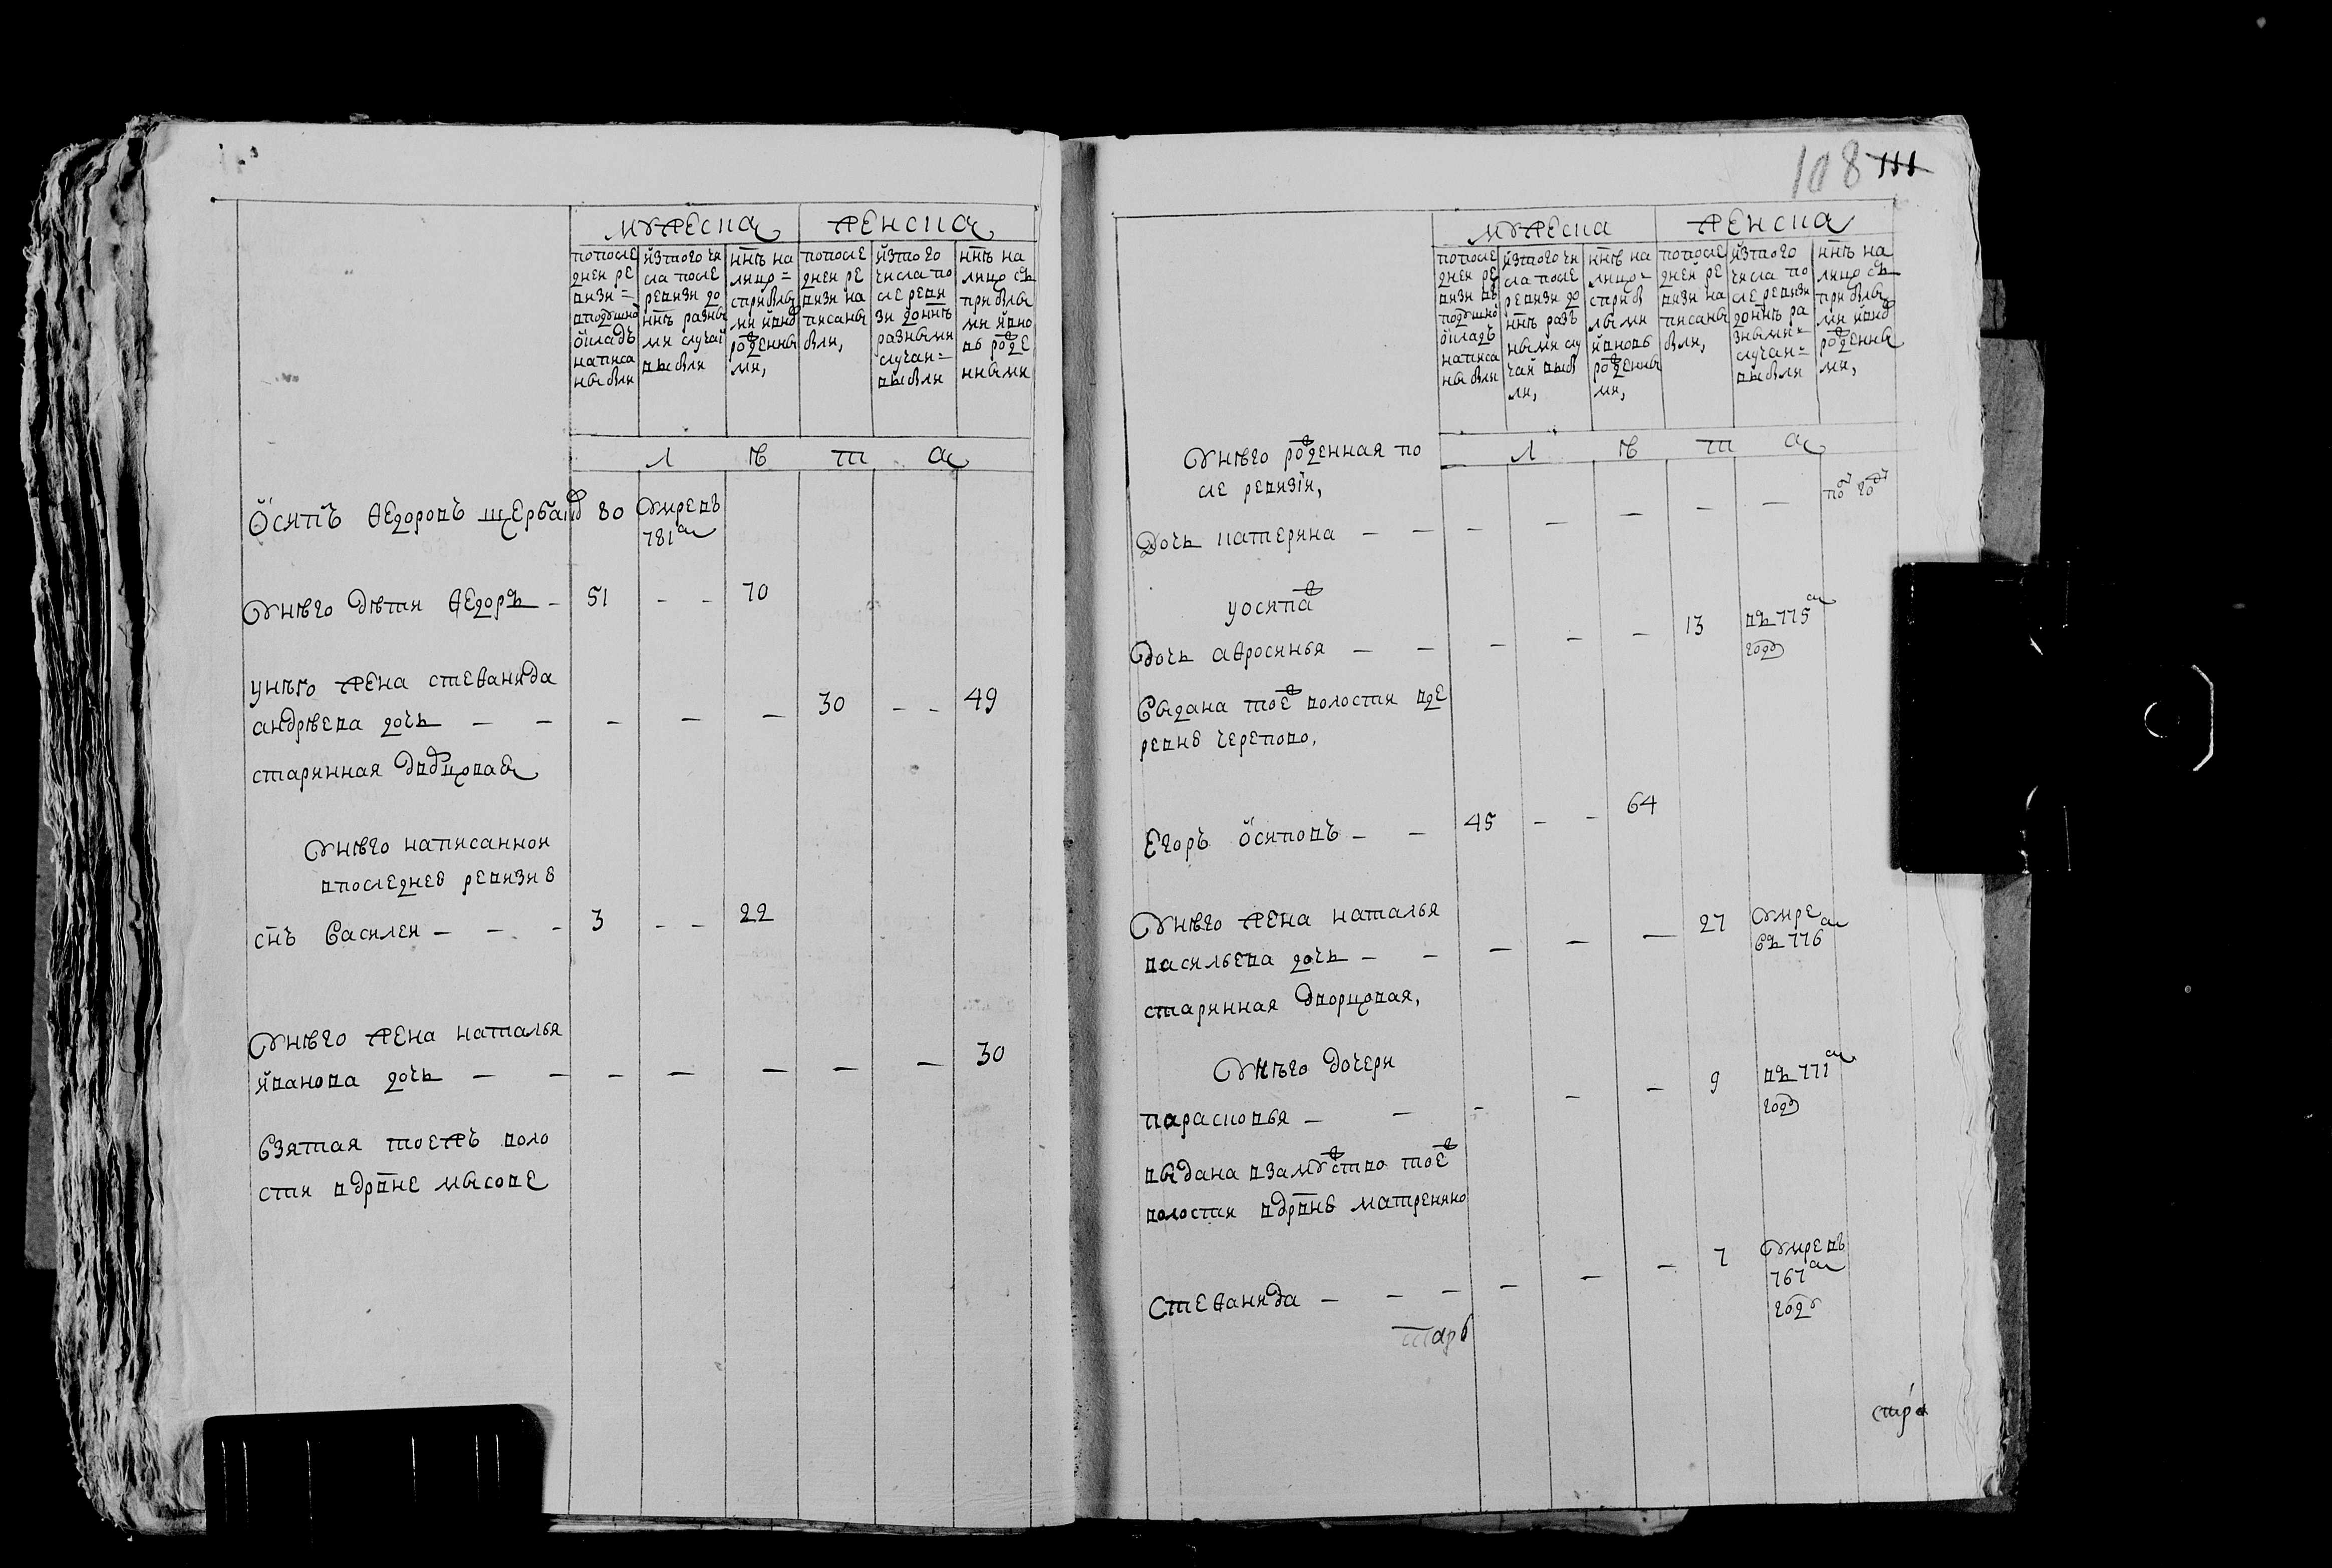 мужеска женска
попосле
днеи ре
визи =
вподушно
окладъ
написа
ны были
изтого чи
сла после
ревизи до
ннѣ разны
ми случаи
выбыли
ннѣ на
лицо =
сприбылы
ми ивно
рожденны
ми,
попосле
днеи ре
визи на
писаны
были,
изтого
числа по
сле реви
зи доннѣ
разными
случаи =
выбыли
ннѣ на
лицо съ
прибылы
ми ивно
вь роже
нными
л ѣ т а
Осипъ Ѳедоровъ щербакъ 80 умре въ
781м
Унѣго дѣти Ѳедоръ - 51 - - 70
унѣго жена стеѲанида
андрѣева дочь — — — — — 30 - - 49
старинная двцовая
Унѣго написаннои
впоследнеи ревизии
снъ Василеи — - - 3 - - 22
Унѣго жена наталья
иванова дочь — — — — — — — 30
Взятая тоежъ воло
сти вдрвне мысове
108 111
мужеска женска
попосле
днеи ре
визи въ
подушно
окладъ
написа
ны были
изтого чи
сла после
ревизи до
ннѣ разъ
ными слу
чаи выбы
ли,
ннѣ на
лицо -
стрибы
лыми
ивновь
рожденны
ми,
попосле
днеи ре
визи на
писаны
были,
изтого
числа по
сле ревизи
доннѣ ра
зными =
случаи =
выбыли
ннѣ на
лицо съ
прибылы
ми ивно
рожденны
ми,
л ѣ т а
Унѣго рожденная по
сле ревизіи,
Дочь катерина — — — — — — — полго
уосипа ж
Дочь авросинья — — — — — 13 въ 775м
году
Выдана тоеж волости вде
ревню черепово,
Егоръ Осиповъ — — 45 - - 64
Унѣго жена наталья
васильева дочь — — — — — 27 умре
въ 776м
старинная дворцовая,
Унѣго дочери
парасковья — — - — — 9 въ 771м
году
выдана взамужство тоеж
волости вдрвню матренино
СтеѲанида — - — — — — 7 умре въ
767м
году